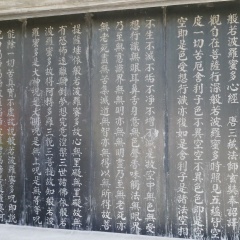 般若波羅蜜多心經 唐三藏法師玄奘奉詔譯
觀自在菩薩行深般若波羅蜜多時照見五蘊皆空
度一切苦厄舍利子色不異空空不異色色即是空
空即是色受想行識亦復如是舍利子是諸法空相
不生不滅不垢不淨不增不減是故空中無色無受
想行識無眼耳鼻舌身意無色聲香味觸法無眼界
乃至無意識界無無明亦無無明盡乃至無老死亦
無老死盡無苦集滅道無智亦無得以無所得故菩
提薩埵依般若波羅蜜多故心無罣礙無罣礙故無
有恐怖遠離顛倒夢想究竟涅槃三世諸佛依般若
波羅蜜多故得阿耨多羅三藐三菩提故知般若波
羅蜜多是大神咒是大明咒是無上咒是無等等咒
能除一切苦真實不虛故說般若波羅蜜多咒即說